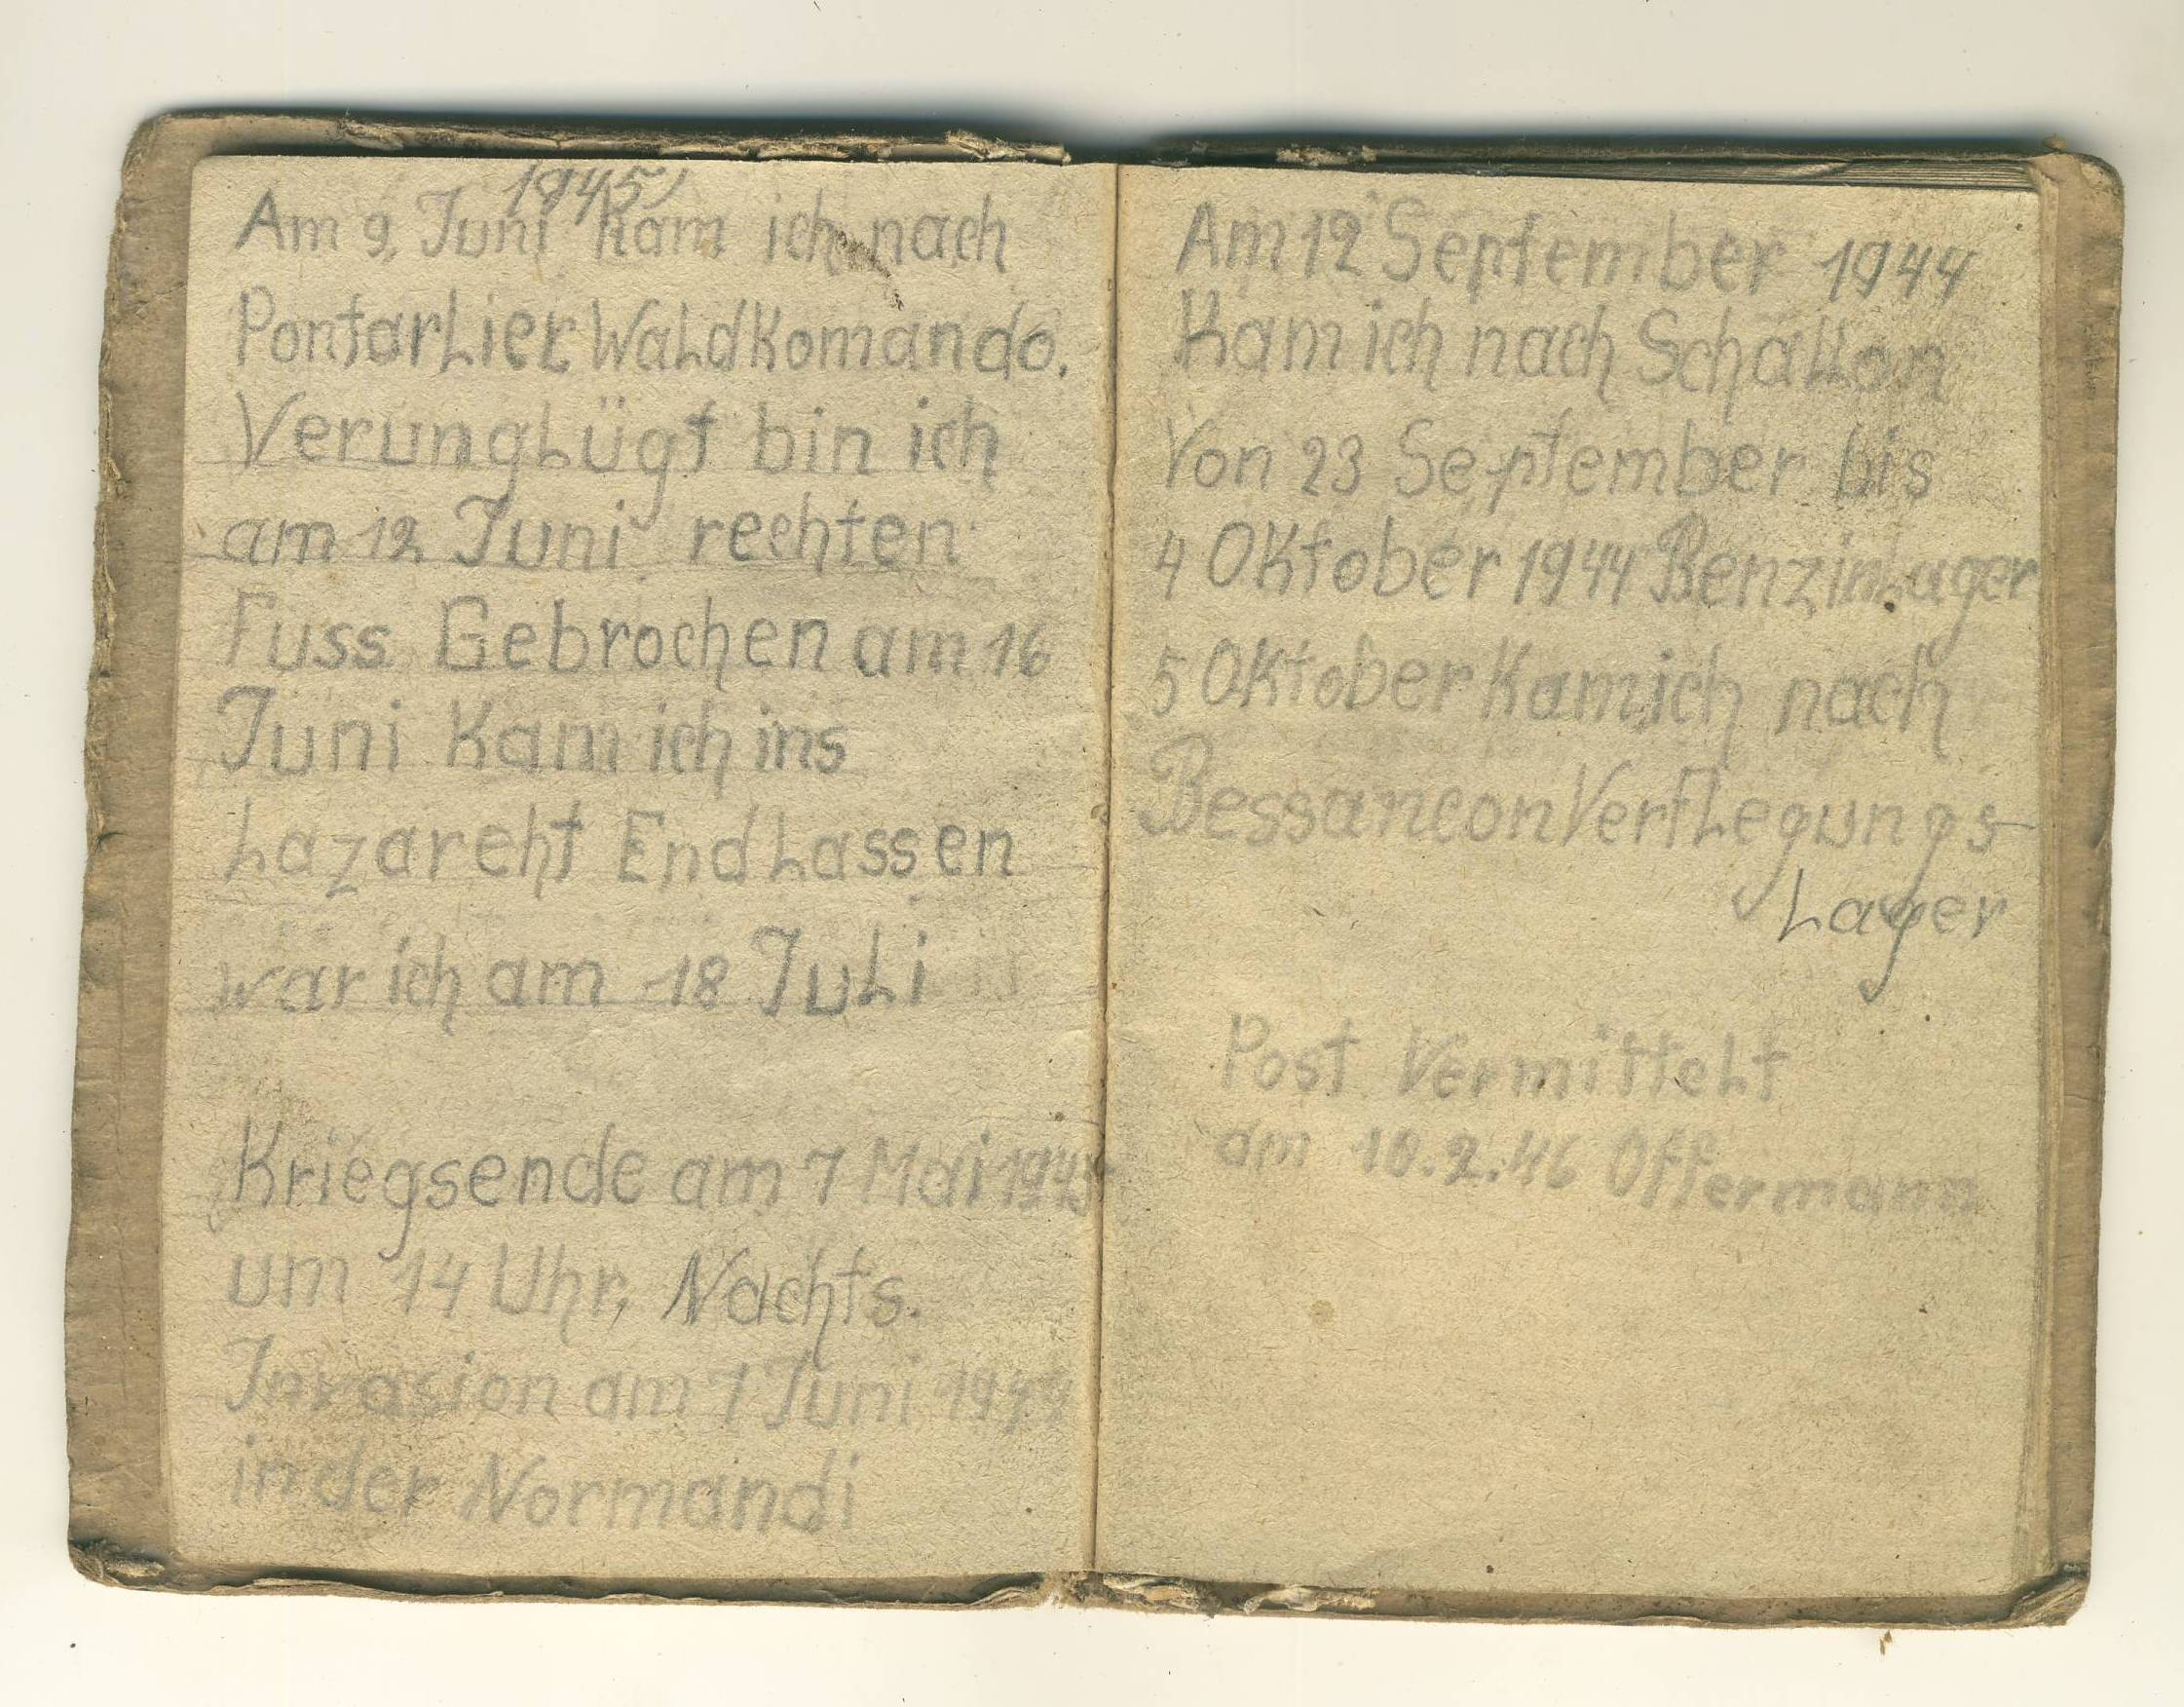 1945
Am 9. Juni kam ich nach
Pontarlier Waldkomando.
Verunglügt bin ich
am 12 Juni rechten
Fuss Gebrochen am 16
Juni Kam ich ins
Lazareht Endlassen
war ich am 18 Juli
Kriegsende am 7 Mai 1945
um 14 Uhr, Nachts.
Invasion am 7 Juni 1944
in der Normandi
Am 12 September 1944
Kam ich nach Schallon
Von 23 September bis
4 Oktober 1944 Benzinlager
5 Oktober Kam ich nach
Bessancon Verflegungs-
Lager
Post Vermittelt
am 10.2.46 Offermann